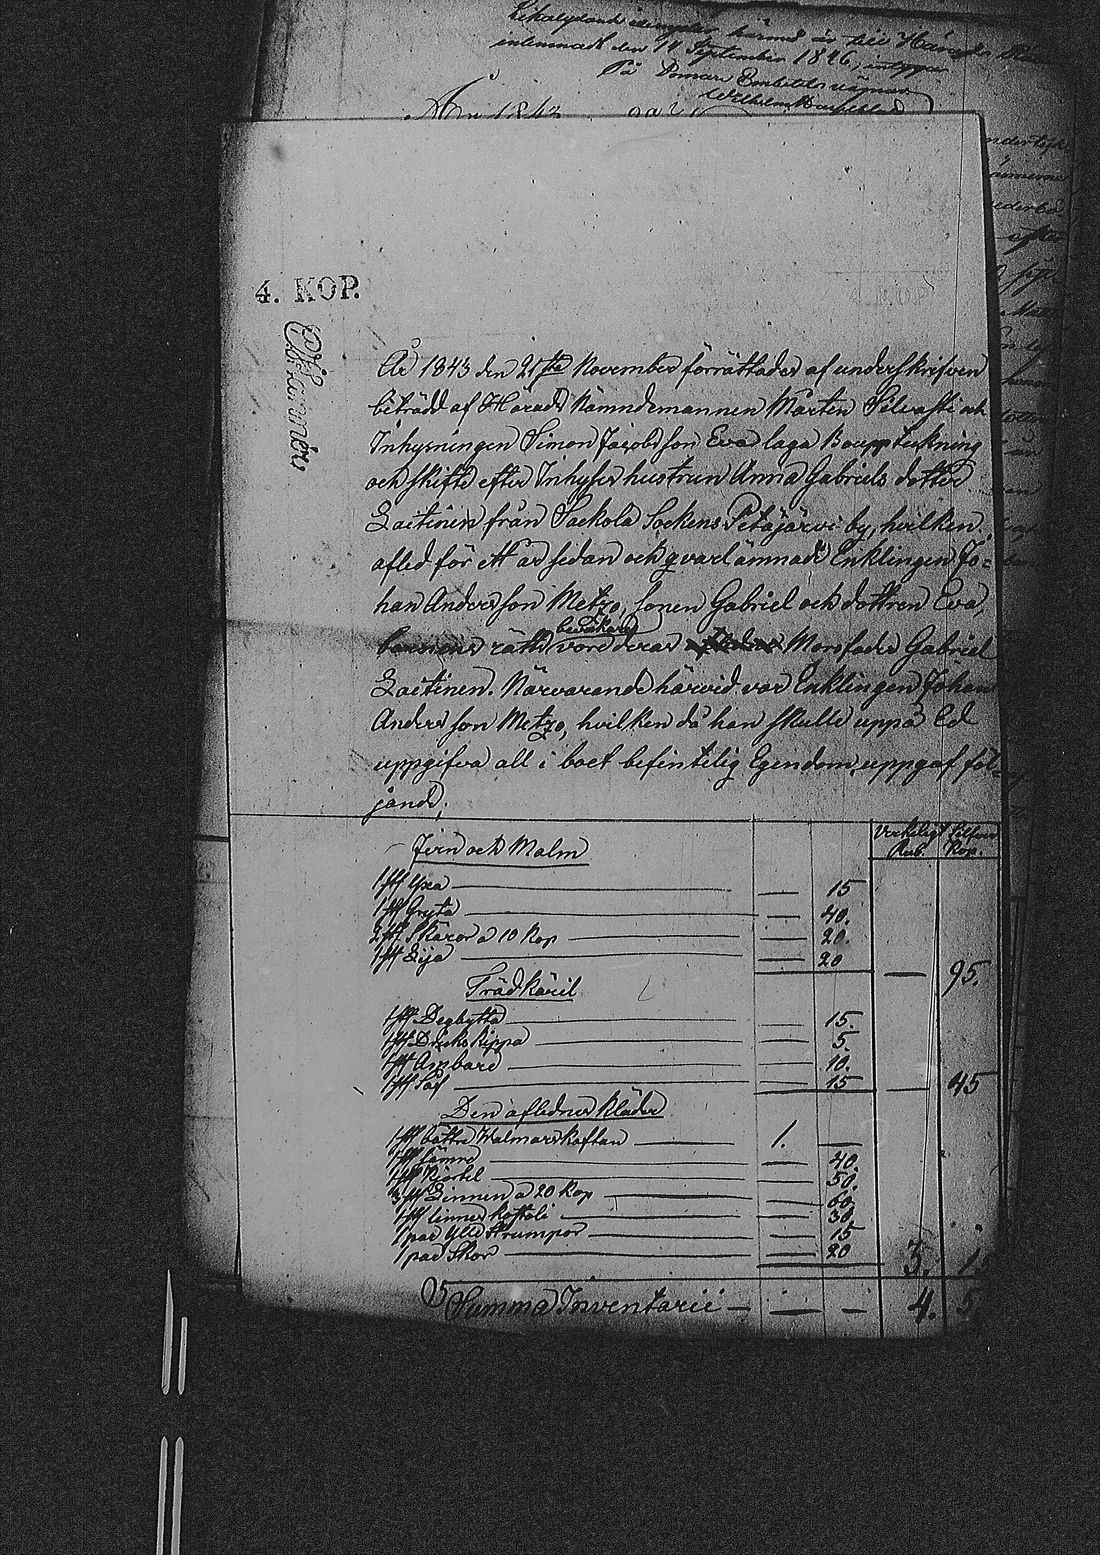 Likalydande exemplar härmed är till Härads Rätten
inlemnadt den 14 September 1846,
På Domare Embetets vägnar
Wilhelm
År 1843
4. KOP.
År 1843 den 21sta November förrättades af underskrifven
biträdd af Härads Nämndemannen Mårten Silvasti och
Inhysningen Simon Jacobsson Eva laga Bouppteckning
och skifte efter Inhyses hustrun Anna Gabriels dotter
Laitinen från Sackola Sockens Petäjärvi by, hvilken
afled för ett år sedan och qvarlämnade Enklingen Jo=
han Andersson Metzo, sonen Gabriel och dottren Eva,
barnens rätt bevakare vore deras Morfader Gabriel
Laitinen. Närvarande härvid var Enklingen Johan
Andersson Metzo, hvilken då han skulle uppå Ed
uppgifva all i boet befintelig Egendom, uppgaf föl=
jande;
Verkeligt Silfver
Rub. Kop.
Jern och Malm
1 st Yxa — 15
1 st Gryta — 40.
2 st Skäror a 10 Kop — 20.
1 st Lija — 20 — 95.
Trädkäril
1 st Degbytta — 15.
1 st Drickskippa — 5.
1 st — 10.
1 st Såf — 15 — 45
Den aflednes kläder
1 st bättre Walmarskaftan — 1. —
1 st sämre — 40.
1 st Kjortel — 50.
3 st Linnen a 20 Kop — 60.
1 st linnes kostoli — 30.
1 par Ylle strumpor — 15
1 par Skor — 20 3. 15
Summa Inventarii — — — 4. 5